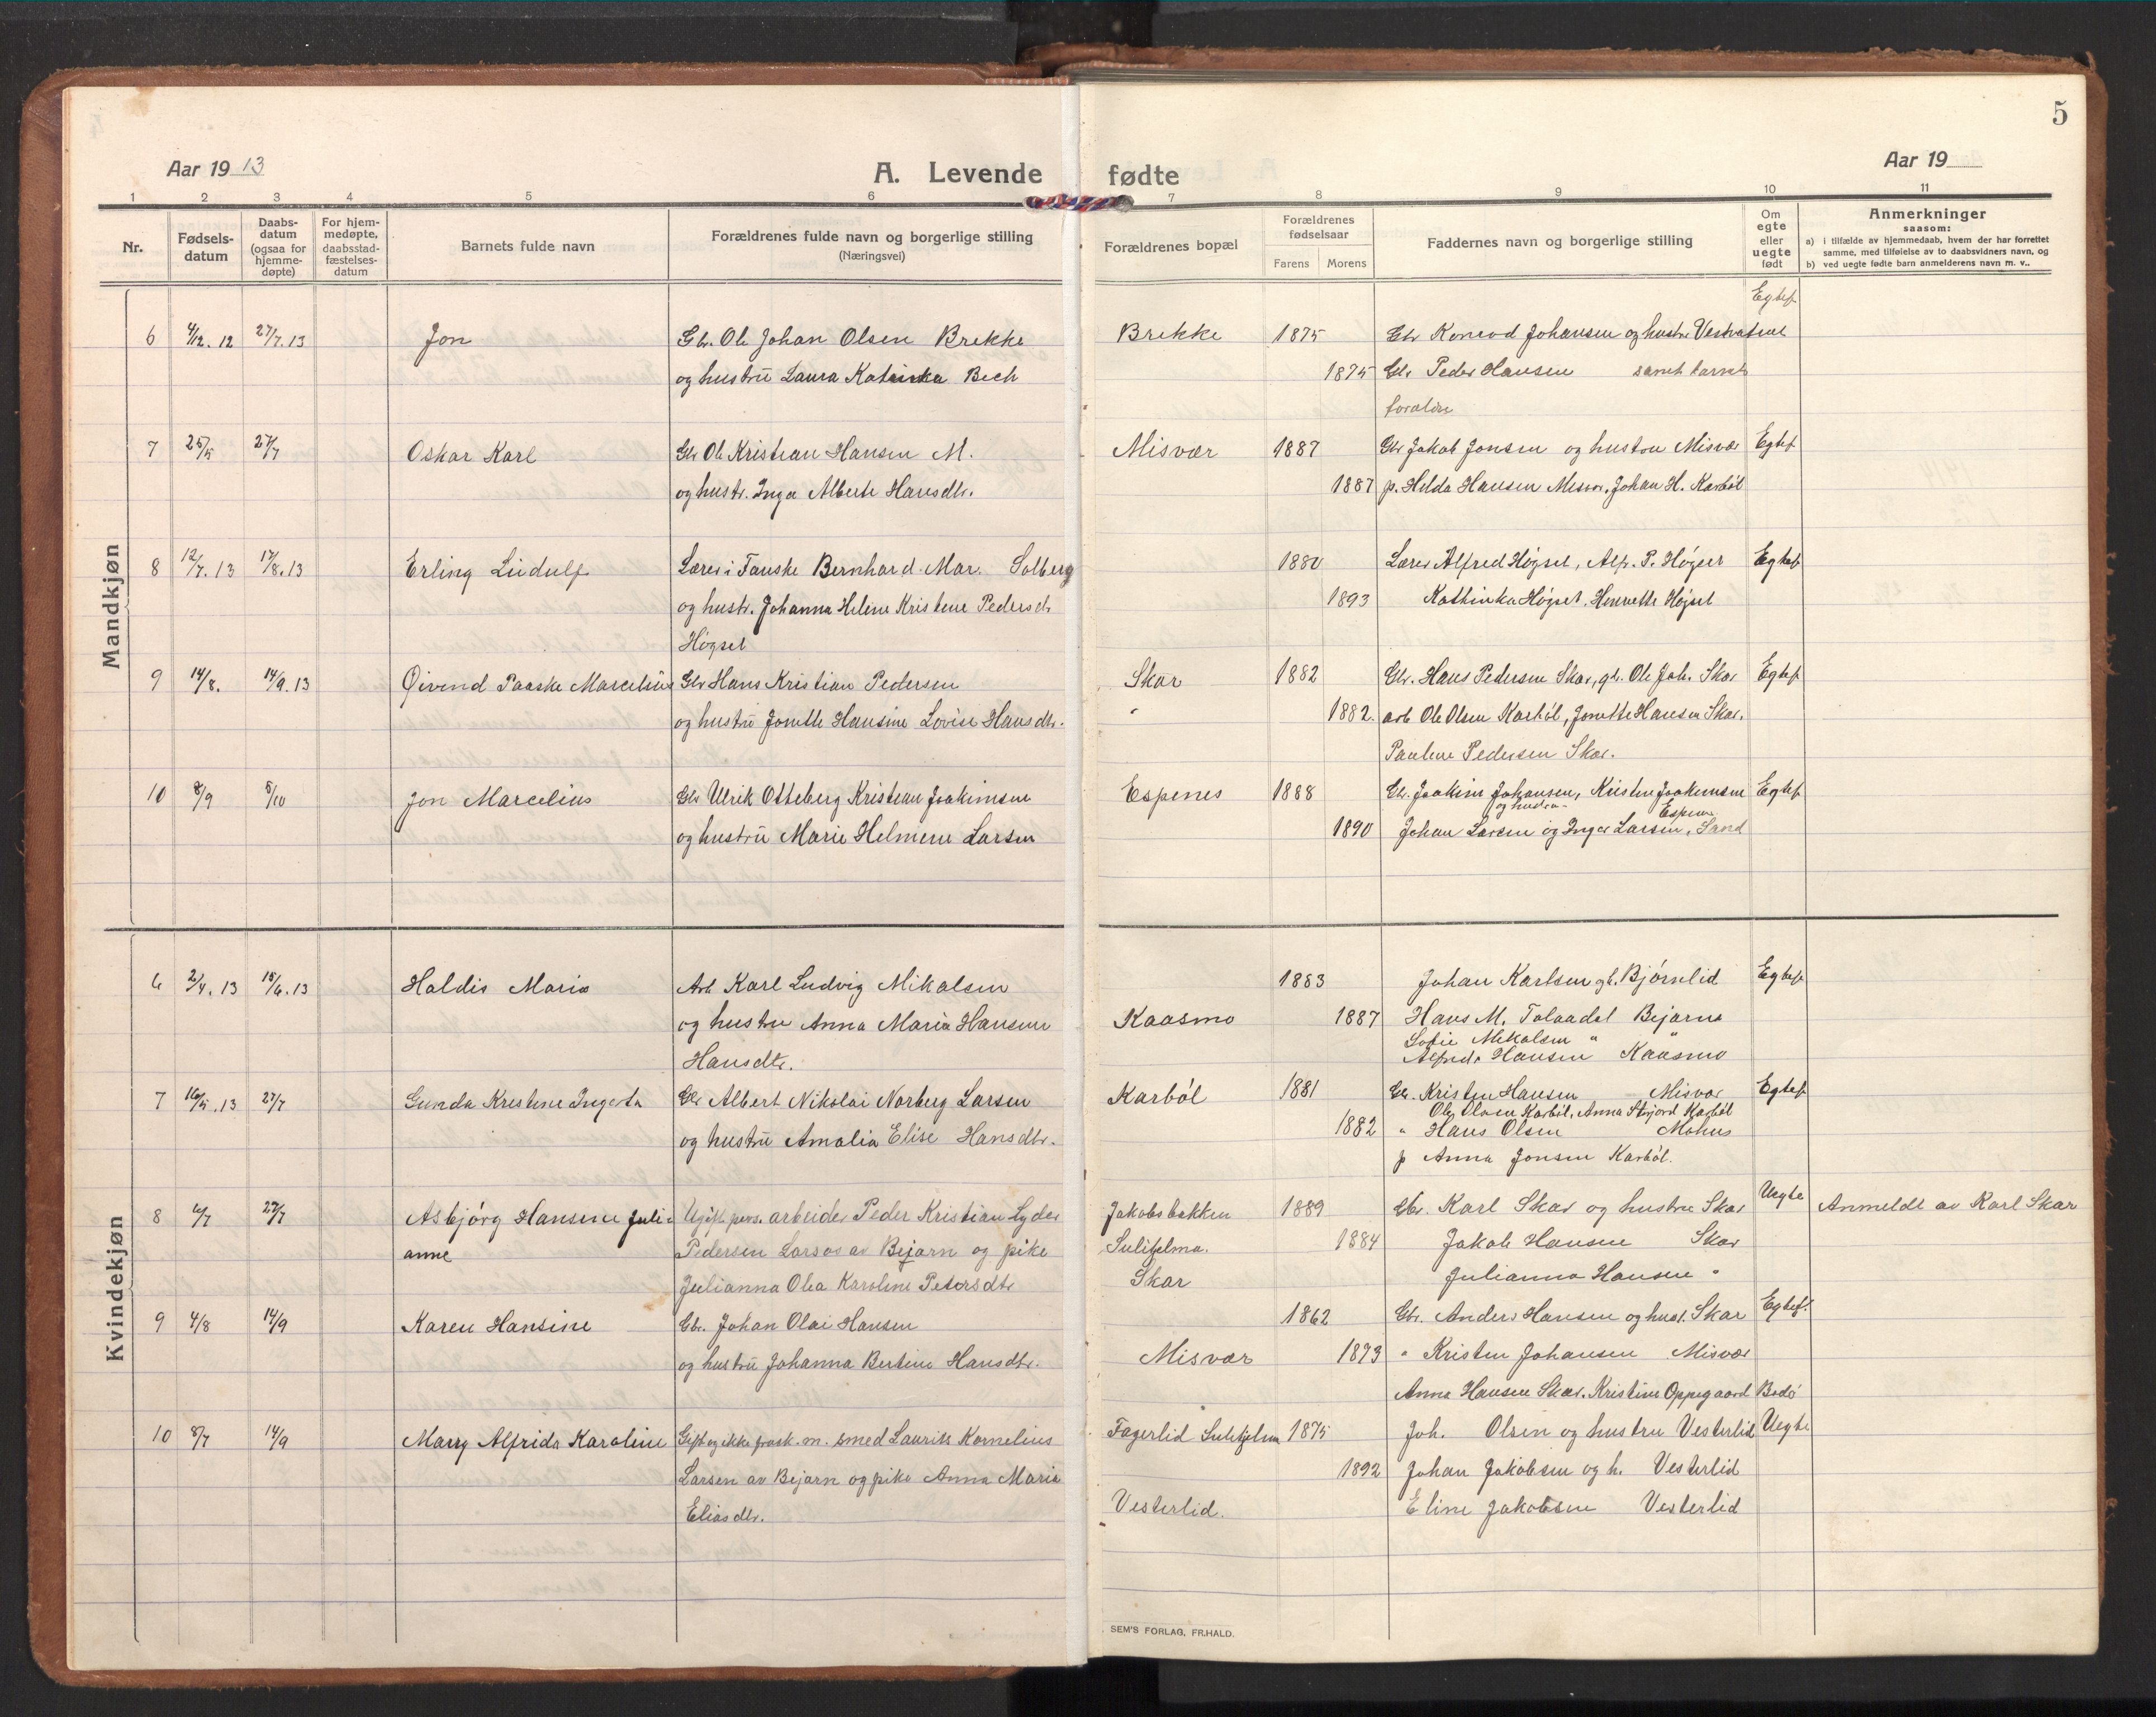 5
Aar 19 13
A. Levende fødte
Aar 19
1 2 3 4 5 6 7 8 9 10 11
Nr.
Fødsels-
datum
Daabs-
datum
(ogsaa for
hjemme-
døpte)
For hjem-
medøpte,
daabsstad-
fæstelses-
datum
Barnets fulde navn
Forældrenes fulde navn og borgerlige stilling
(Næringsvei)
Forældrenes bopæl
Forældrenes
fødselsaar
Farens Morens
Faddernes navn og borgerlige stilling
Om
egte
eller
uegte
født
Anmerkninger
saasom:
a) i tilfælde av hjemmedaab, hvem der har forrettet
samme, med tilføielse av to daabsvidners navn, og
b) ved uegte fødte barn anmelderens navn m. v..
Mandkjøn
Egtef.
6 4/12. 12 27/7. 13 Jon Gbr. Ole Johan Olsen Brekke Brekke 1875 Gbr Konrad Johansen og hustru
og hustrü Laura Katinka Bech 1875 Gbr Peder Hansen samt barnets
forældre
7 25/5 27/7 Oskar Karl Gbr Ole Kristian Hansen M. Misvær 1887 Gbr Jakob Jonsen og hustru Misvær Egtef
og hustr. Inga Alberte Hansdtr. 1887 p. Hilda Hansen Misvær, Johan H. Karbøl
8 12/7. 13 17/8. 13 Erling Lüdulf Lærer i Fauske Bernhard Mar. Solberg 1880 Lærer Alfred Høgset, Alfr. P. Høgset Egtef
og hustr. Johanna Helene Kristene Pedersdtr 1893 Kathinka Høgset, Henrette Høgset
Høgset
9 14/8. 14/9. 13 Øivind Paaske Marcelius Gbr Hans Kristian Pedersen Skar 1882 Gbr. Hans Pedersen Skar, gb. Ole Joh. Skar Egtef
og hustrü Jonette Hansine Lovise Hansdtr. " 1882. arb Ole Olsen Karbøl, Jonette Hansen Skar.
Pauline Pedersen Skar.
10 8/9 5/10 Jon Marcelius Gbr Ulrik Otteberg Kristian Joakimsen Espenes 1888 Gbr. Joakim Johansen, Kristen Joakimsen Egtef
og hustru Espenes
og hustrü Marie Helmine Larsen 1890 Johan Larsen og Inger Larsen, Sand
Kvindekjøn
6 2/4. 13 15/6. 13 Haldis Maria Arb Karl Ludvig Mikalsen 1883 Johan Karlsen gb. Bjørnlid Egtef
og hustru Anna Maria Hansen Kaasmo 1887 Hans M. Tolaadal Bejarn
Sofie Mikalsen "
Hansdtr. Alfrida Hansen Kaasmo
7 16/5. 13 27/7 Gunda Kristine Ingerta Gbr Albert Nikolai Norberg Larsen Karbøl 1881 Gbr. Kristen Hansen Misvær Egtef
Ole Olsen Karbøl, Anna Karbøl
og hustrü Amalia Elise Hansdtr. 1882 " Hans Olsen Mohus
p Anna Jonsen Karbøl.
8 6/7 27/7 Asbjørg Hansene Juli- Ugift pers. arbeider Peder Kristian Lyder Jakobsbakken 1889 Gbr. Karl Skar og hustru Skar Uegte Anmeldt av Karl Skar
anne Pedersen Larsos av Bejarn og pike Sulitjelma. 1884 Jakob Hansen Skar
Julianna Olea Karoline Petersdtr Skar Julianna Hansen "
9 4/8 14/9 Karen Hansine Gbr. Johan Olai Hansen 1862 Gbr. Anders Hansen og hust. Skar Egtef.
og hustrü Johanna Bertine Hansdtr. Misvær 1873 " Kristen Johansen Misvær
Anna Hansen Skar. Kristine Oppegaard Bodö
10 8/7 14/9 Marry Alfrida Karoline Gift og ikke frask. m. smed Laurits Kornelius Fagerlid Sulitjelma 1875 Joh. Olsen og hustru Vesterlid Uegte
Larsen av Bejarn og pike Anna Maria 1892 Johan Jakobsen og h. Vesterlid
Eliasdtr. Vesterlid. Eline Jakobsen Vesterlid
SEM'S FORLAG, FR.HALD.